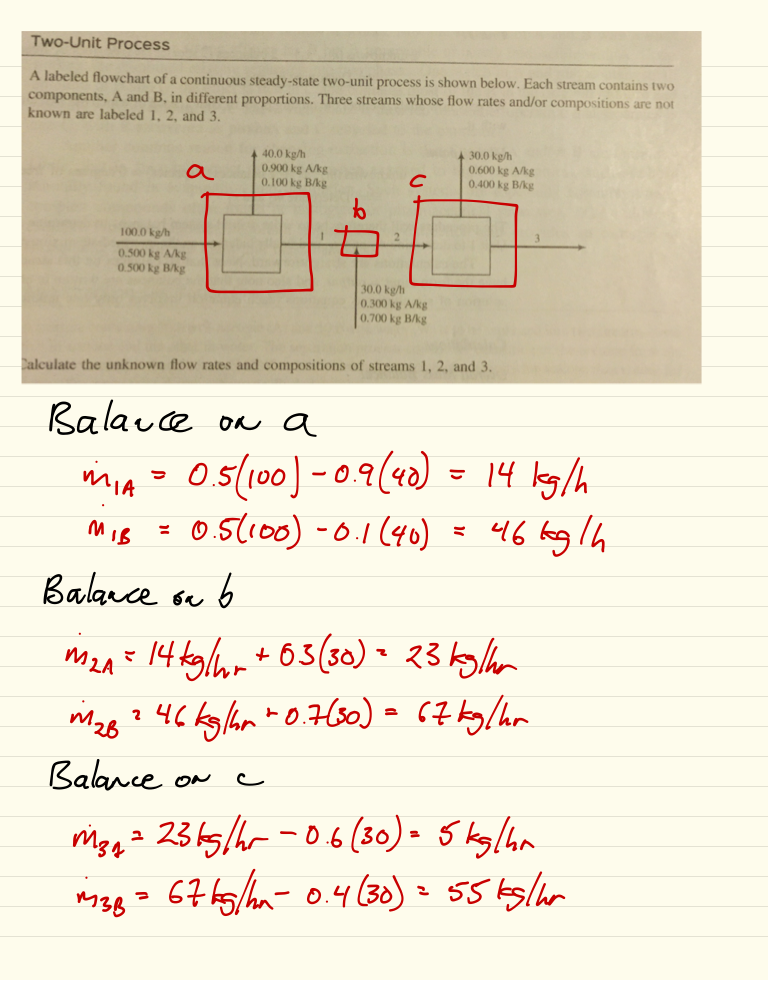 Two-Unit Process
A labeled flowchart of a continuous steady-state two-unit process is shown below. Each stream contains two
components, A and B, in different proportions. Three streams whose flow rates and/or compositions are not
known are labeled 1, 2, and 3.
a
40.0 kg/h
0.900 kg A/kg
0.100 kg B/kg
c
30.0 kg/h
0.600 kg A/kg
0.400 kg B/kg
b
100.0 kg/h
0.500 kg A/kg
0.500 kg B/kg
1
2
3
30.0 kg/h
0.300 kg A/kg
0.700 kg B/kg
Calculate the unknown flow rates and compositions of streams 1, 2, and 3.
Balance on a
ṁ1A = 0.5(100) - 0.9(40) = 14 kg/h
ṁ1B = 0.5(100) - 0.1(40) = 46 kg/h
Balance on b
ṁ2A = 14 kg/hr + 0.3(30) = 23 kg/hr
ṁ2B = 46 kg/hr + 0.7(30) = 67 kg/hr
Balance on c
ṁ3A = 23 kg/hr - 0.6(30) = 5 kg/hr
ṁ3B = 67 kg/hr - 0.4(30) = 55 kg/hr